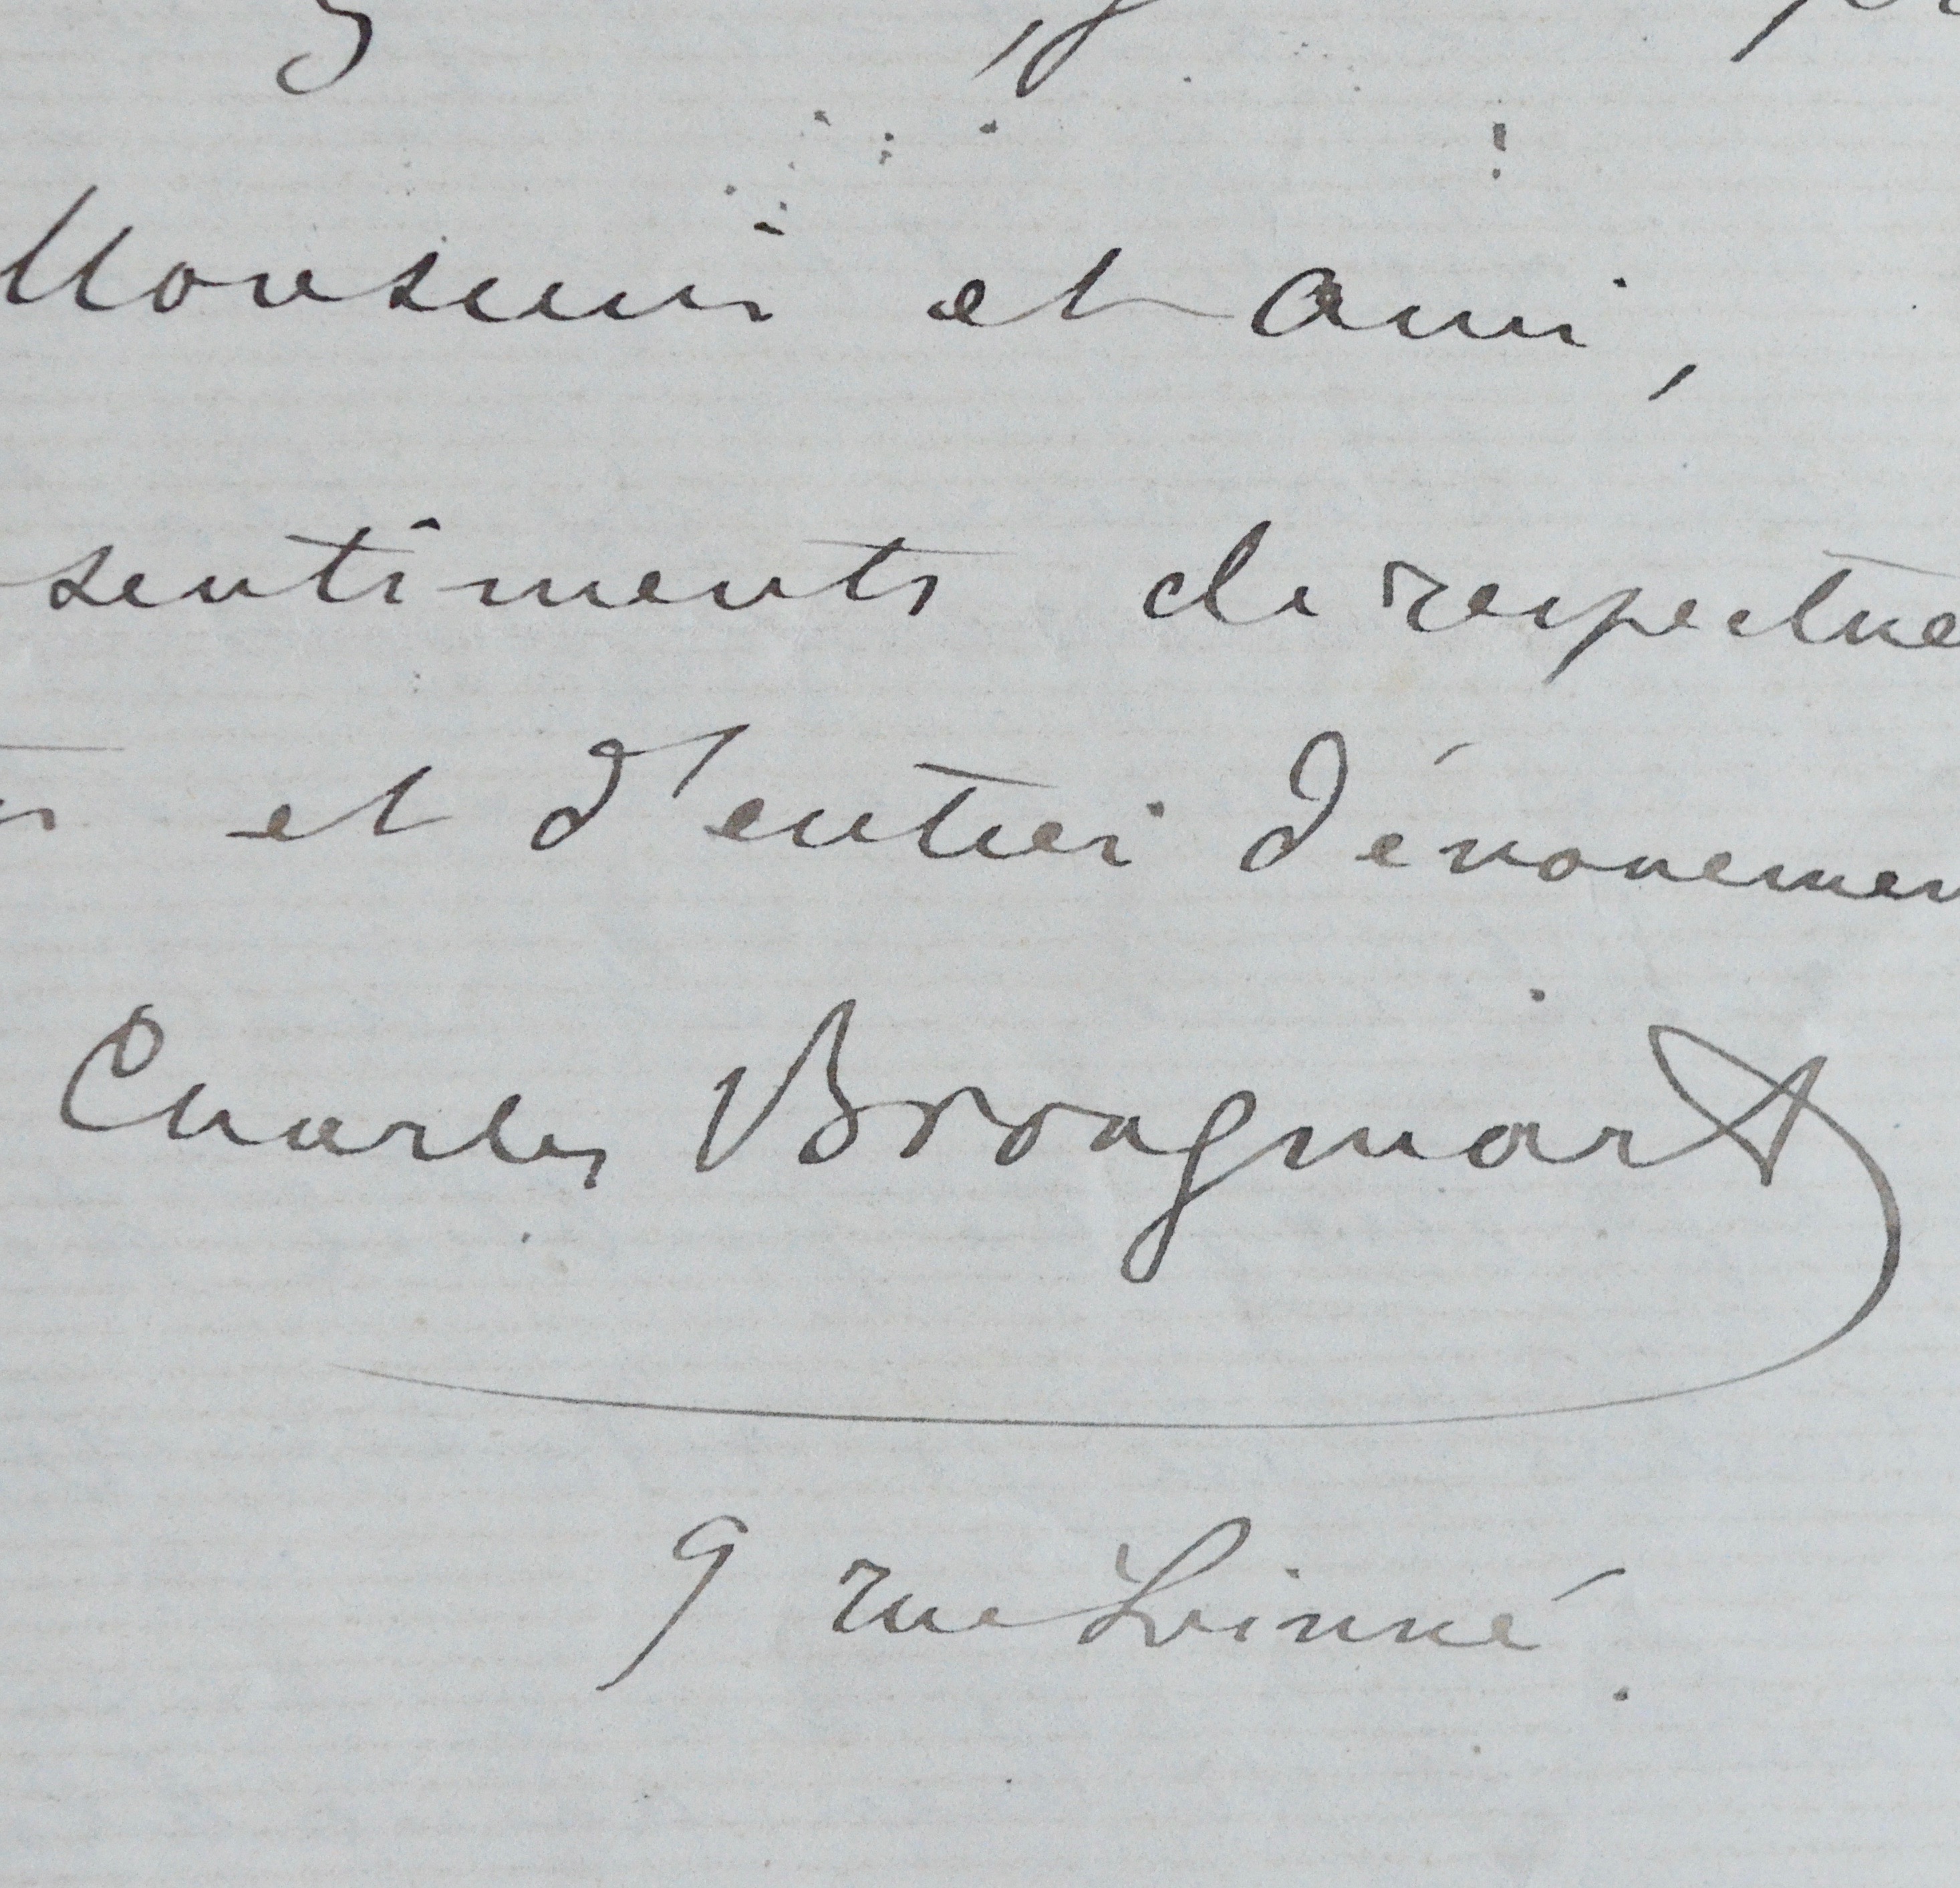 Monsieur et ami,
sentiments de respectue
et d'entier dévouemen
Charles Brongniart
9 rue Linné.